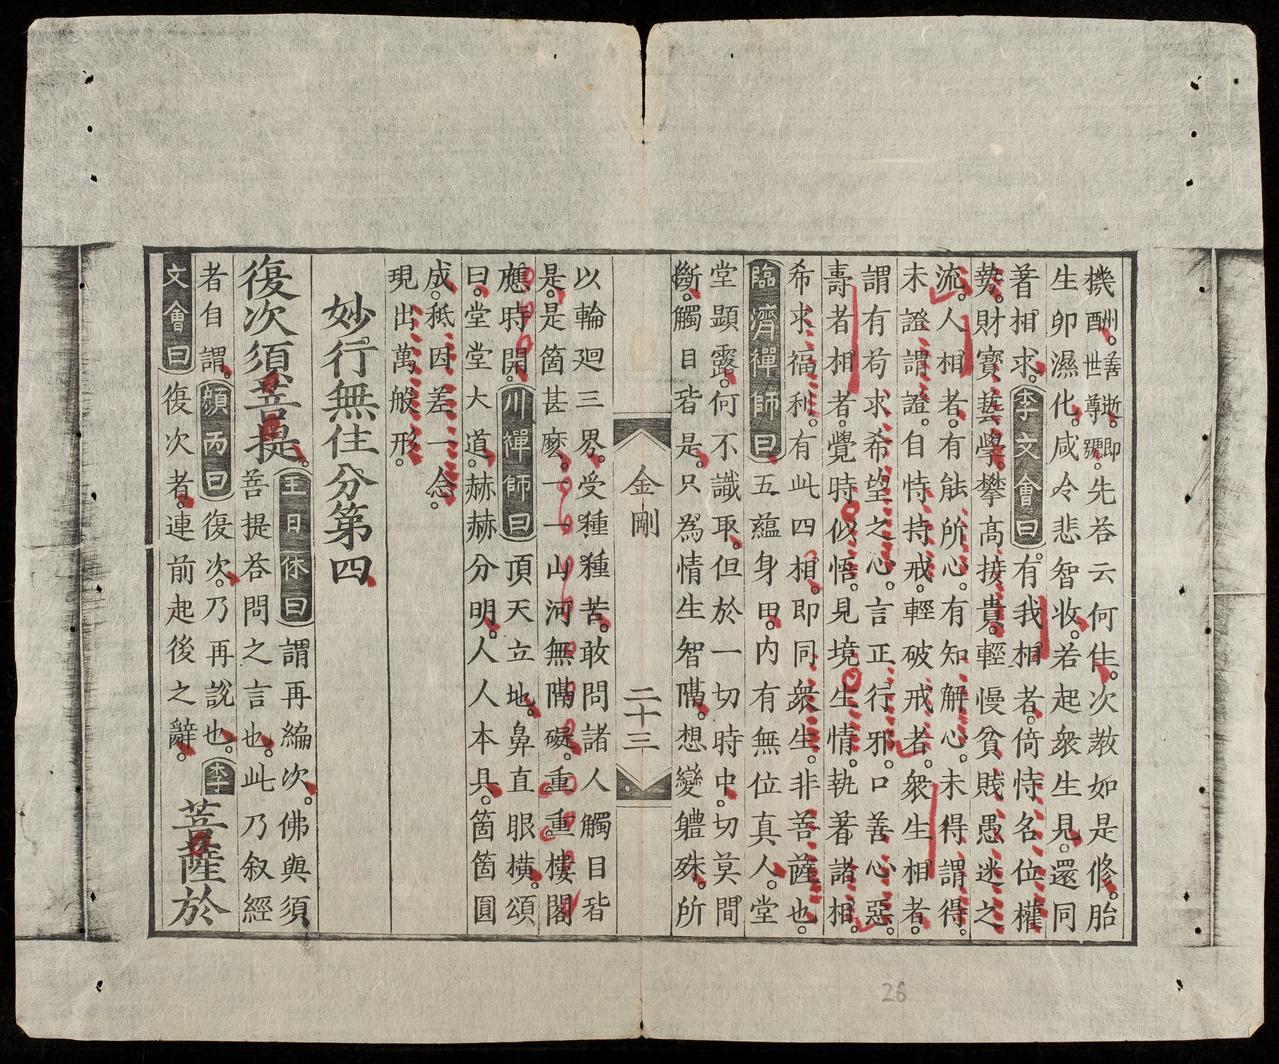 機酬。世尊號。善逝。即先答云何住。次敎如是修。胎
生卵濕化。咸令悲智收。若起衆生見。還同
著相求。李文會曰。有我相者。倚恃名位權
勢。財寶藝學。攀高接貴。輕慢貧賤愚迷之
流。人相者。有能所心。有知解心。未得謂得。
未證謂證。自恃持戒。輕破戒者。衆生相者。
謂有苟求希望之心。言正行邪。口善心惡。
壽者相者。覺時似悟。見境生情。執著諸相。
希求福利。有此四相。即同衆生。非菩薩也。
臨濟禪師曰五蘊身田。內有無位真人。堂
堂顯露。何不識取。但於一切時中。切莫間
斷。觸目皆是。只為情生智隔。想變體殊。所
金剛 二十三
以輪廻三界。受種種苦。敢問諸人觸目皆
是。是箇甚麽。一一山河無隔礙。重重樓閣
應時開。川禪師曰頂天立地。鼻直眼橫。頌
曰。堂堂大道。赫赫分明。人人本具。箇箇圓
成。秪因差一念。
現出萬般形。
妙行無住分第四
復次須菩提。王日休曰謂再編次。佛與須
菩提答問之言也。此乃叙經
者自謂。顏丙曰復次。乃再說也。李
文會曰復次者。連前起後之辭。菩薩於
26